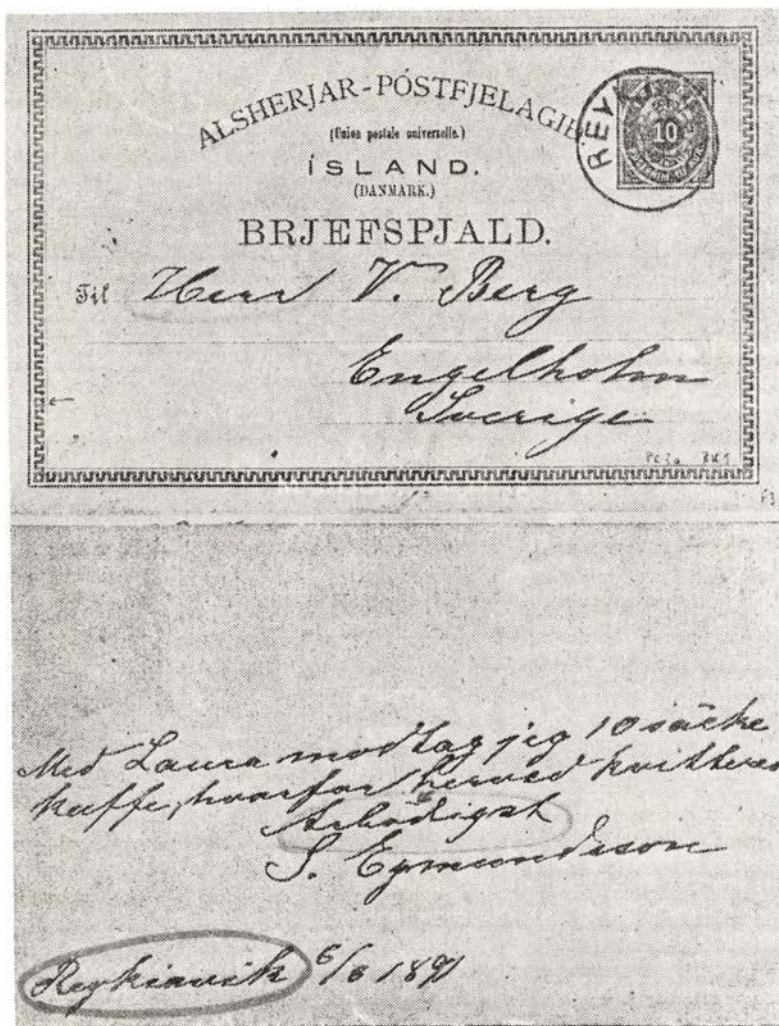 ALSHERJAR-PÓSTFJELAGIÐ.
(Union postale universelle.)
ÍSLAND.
(DANMARK.)
BRJEFSPJALD.
REYK
10
Til Herr V. Berg
Engelholm
Sverige
Med Laura modtag jeg 10 säcke
kaffe, hvorfor herved kvitteres
Ärbödigst
S. Eymundsson
Reykiavik 6/8 1891